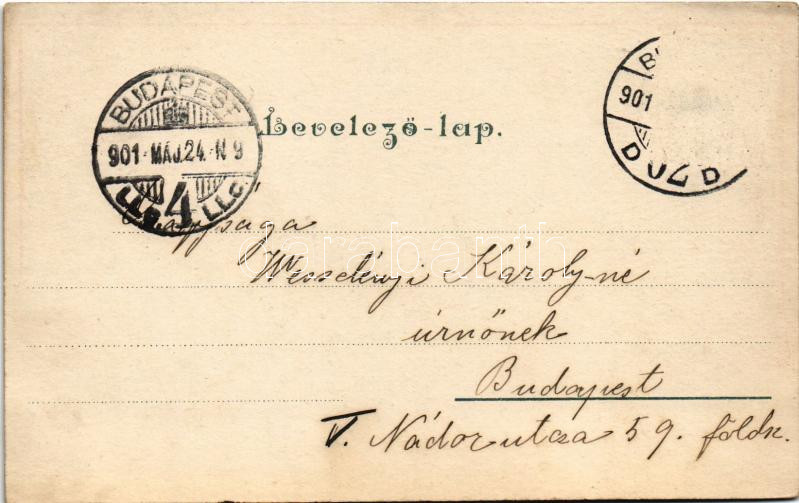 BUDAPEST
901·MÁJ.24·N 9
4
LLc.
Levelező-lap.
B
901
D D
Nagysága
Wesselényi Károly-né
úrnőnek
Budapest
V. Nádor utcza 59. földsz.
darabanth